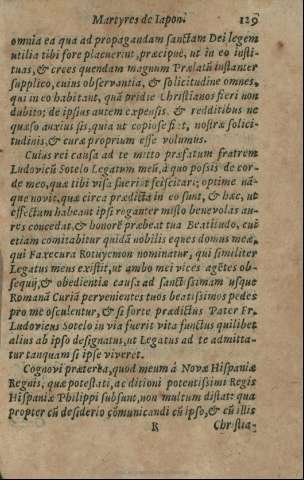 Martyres de Iapon. 129
omnia ea qua ad propagandam sanctam Dei legem
utilia tibi fore placuerint, præcipuè, ut in eo insti-
tuas, & crees quendam magnum Prælatũ instanter
supplico, cuius observantia, & solicitudine omnes,
qui in eo habitant, quã pridiè Christianos fieri non
dubito; de ipsius autem expensis, & redditibus ne
quæso anxius sis, quia ut copiose fiãt, nostræ solici-
tudinis, & curæ proprium esse volumus.
Cuius rei causa ad te mitto præfatum fratrem
Ludovicũ Sotelo Legatum meũ, â quo possis de cor-
de meo, quæ tibi visa fuerint sciscitari; optime nã-
que novit, quæ circa prædicta in eo sunt, & hæc, ut
effectum habeant ipsi roganter misto benevolas au-
res concedat, & honorẽ præbeat tua Beatitudo, cui
etiam comitabitur quidã nobilis eques domus meæ,
qui Faxecura Rocuyemon nominatur, qui similiter
Legatus meus existit, ut ambo mei vices agẽtes ob-
sequij, & obedientiæ causa ad sanctissimam usque
Romanã Curiã pervenientes tuos beatissimos pedes
pro me osculentur, & si forte prædictus Pater Fr.
Ludovicus Sotelo in via fuerit vita functus quilibet
alius ab ipso designatus, ut Legatus ad te admitta-
tur tanquam si ipse viveret.
Cognovi præterea, quod meum á Novæ Hispaniæ
Regnis, quæ potestati, ac ditioni potentissimi Regis
Hispaniæ Philippi subsunt, non multum distat: qua
propter cũ desiderio cõmunicandi cũ ipso, & cũ illis
R Christia-